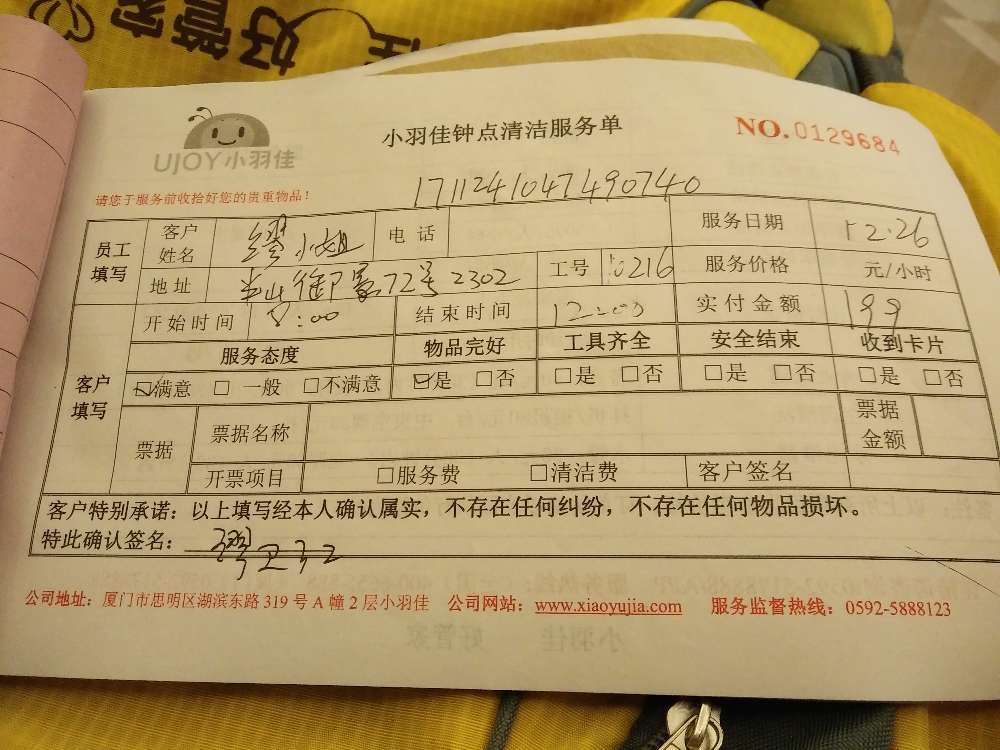 好管家 佳
UJOY小羽佳
小羽佳钟点清洁服务单
NO.0129684
请您于服务前收拾好您的贵重物品！
1711241047490740
员工填写 客户姓名 缪小姐 电话 服务日期 12.26
地址 御景72号2302 工号 216 服务价格 元/小时
客户填写 开始时间 8:00 结束时间 12:00 实付金额 199
服务态度 物品完好 工具齐全 安全结束 收到卡片
☑满意 □一般 □不满意 ☑是 □否 □是 □否 □是 □否 □是 □否
票据 票据名称 票据金额
开票项目 □服务费 □清洁费 客户签名
客户特别承诺：以上填写经本人确认属实，不存在任何纠纷，不存在任何物品损坏。
特此确认签名：
公司地址：厦门市思明区湖滨东路319号A幢2层小羽佳 公司网站：www.xiaoyujia.com 服务监督热线：0592-5888123